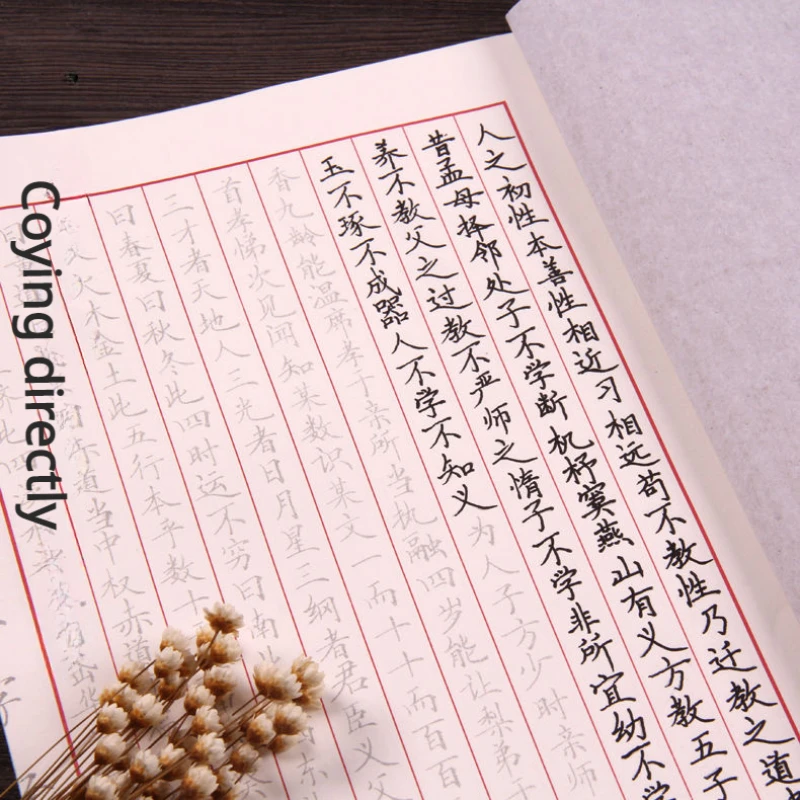 人之初性本善性相近习相远苟不教性乃迁教之道
昔孟母择邻处子不学断机杼窦燕山有义方教五子
养不教父之过教不严师之惰子不学非所宜幼不学
玉不琢不成器人不学不知义为人子方少时亲师
香九龄能温席孝于亲所当执融四岁能让梨弟于
首孝悌次见闻知某数识某文一而十十而百百
三才者天地人三光者日月星三纲者君臣义父
曰春夏曰秋冬此四时运不穷曰南北
火木金土此五行本乎数十
道当中权赤道
Coying directly